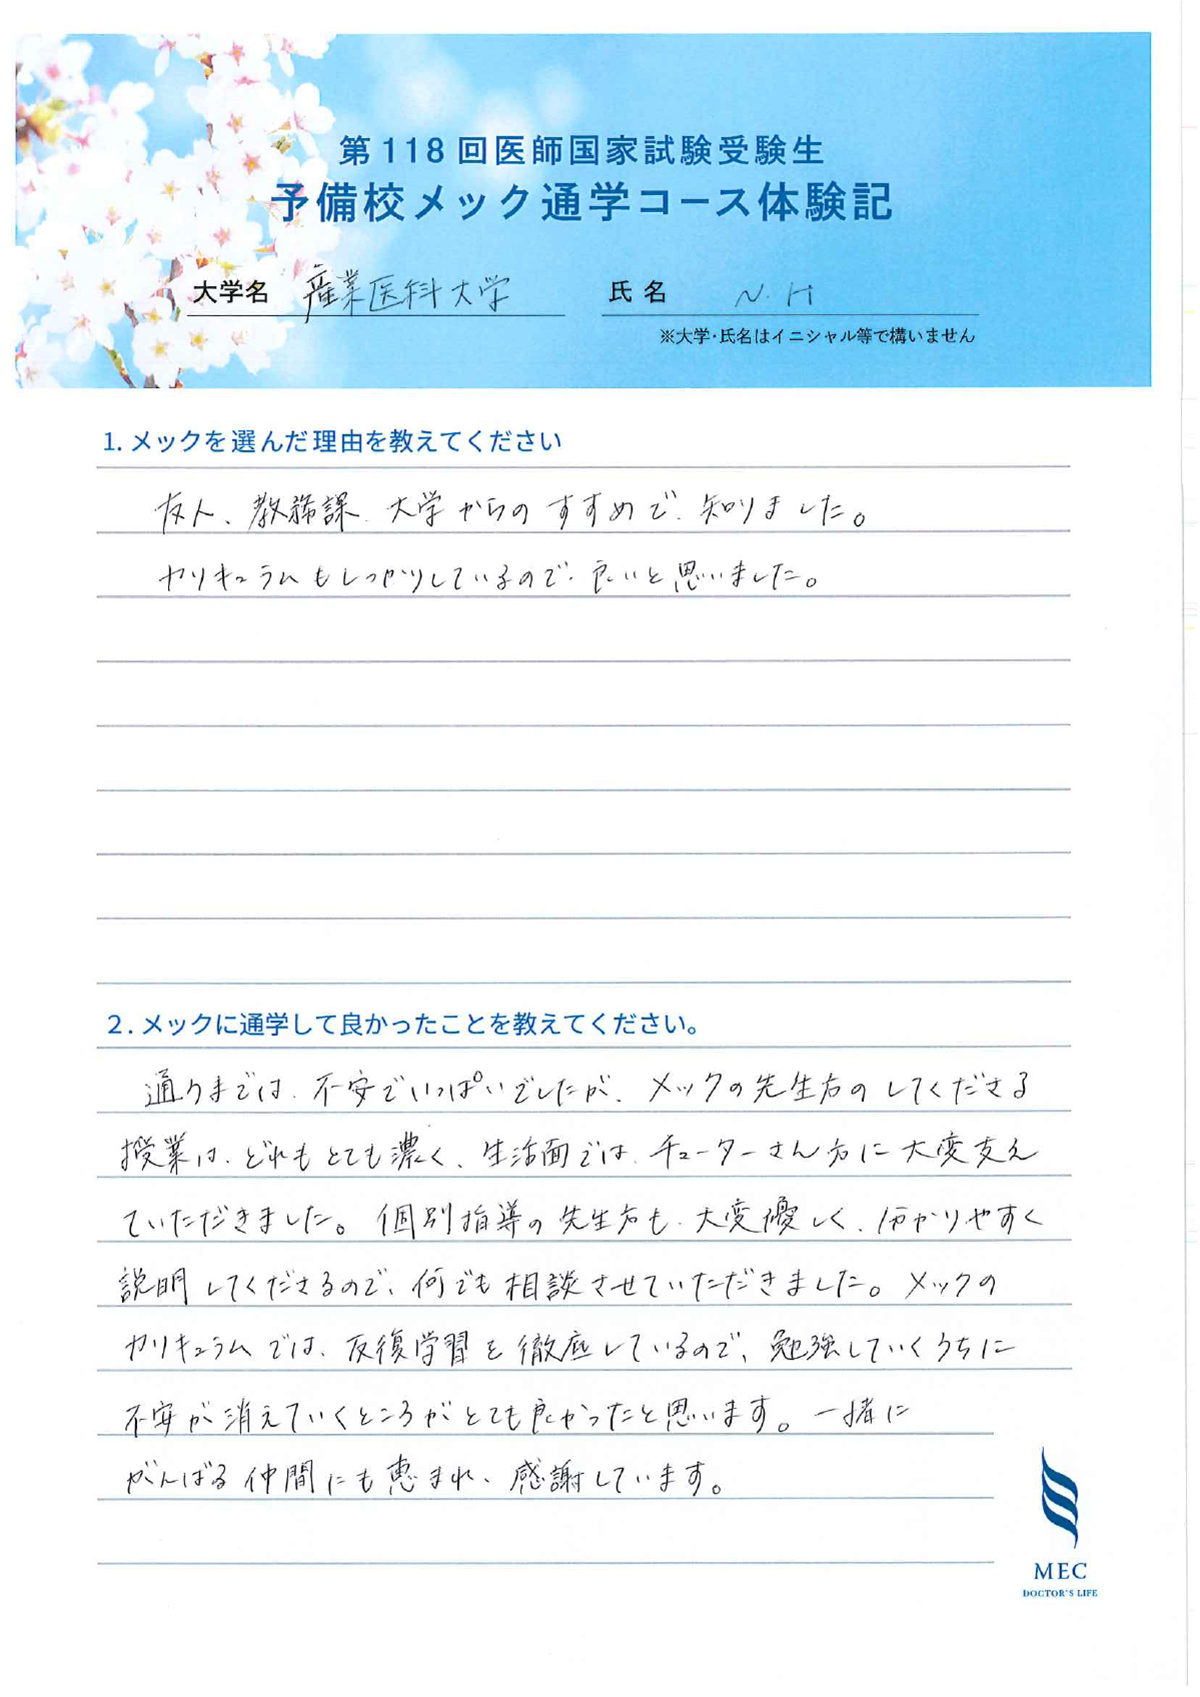 第118回医師国家試験受験生
予備校メック通学コース体験記
大学名 産業医科大学 氏名 N.H
※大学・氏名はイニシャル等で構いません
1. メックを選んだ理由を教えてください
友人、教務課、大学からのすすめで、知りました。
カリキュラムもしっかりしているので、良いと思いました。
2. メックに通学して良かったことを教えてください。
通うまでは、不安でいっぱいでしたが、メックの先生方のしてくださる
授業は、どれもとても濃く、生活面では、チューターさん方に大変支え
ていただきました。個別指導の先生方も、大変優しく、分かりやすく
説明してくださるので、何でも相談させていただきました。メックの
カリキュラムでは、反復学習を徹底しているので、勉強していくうちに
不安が消えていくところがとても良かったと思います。一緒に
がんばる仲間にも恵まれ、感謝しています。
MEC
DOCTOR'S LIFE